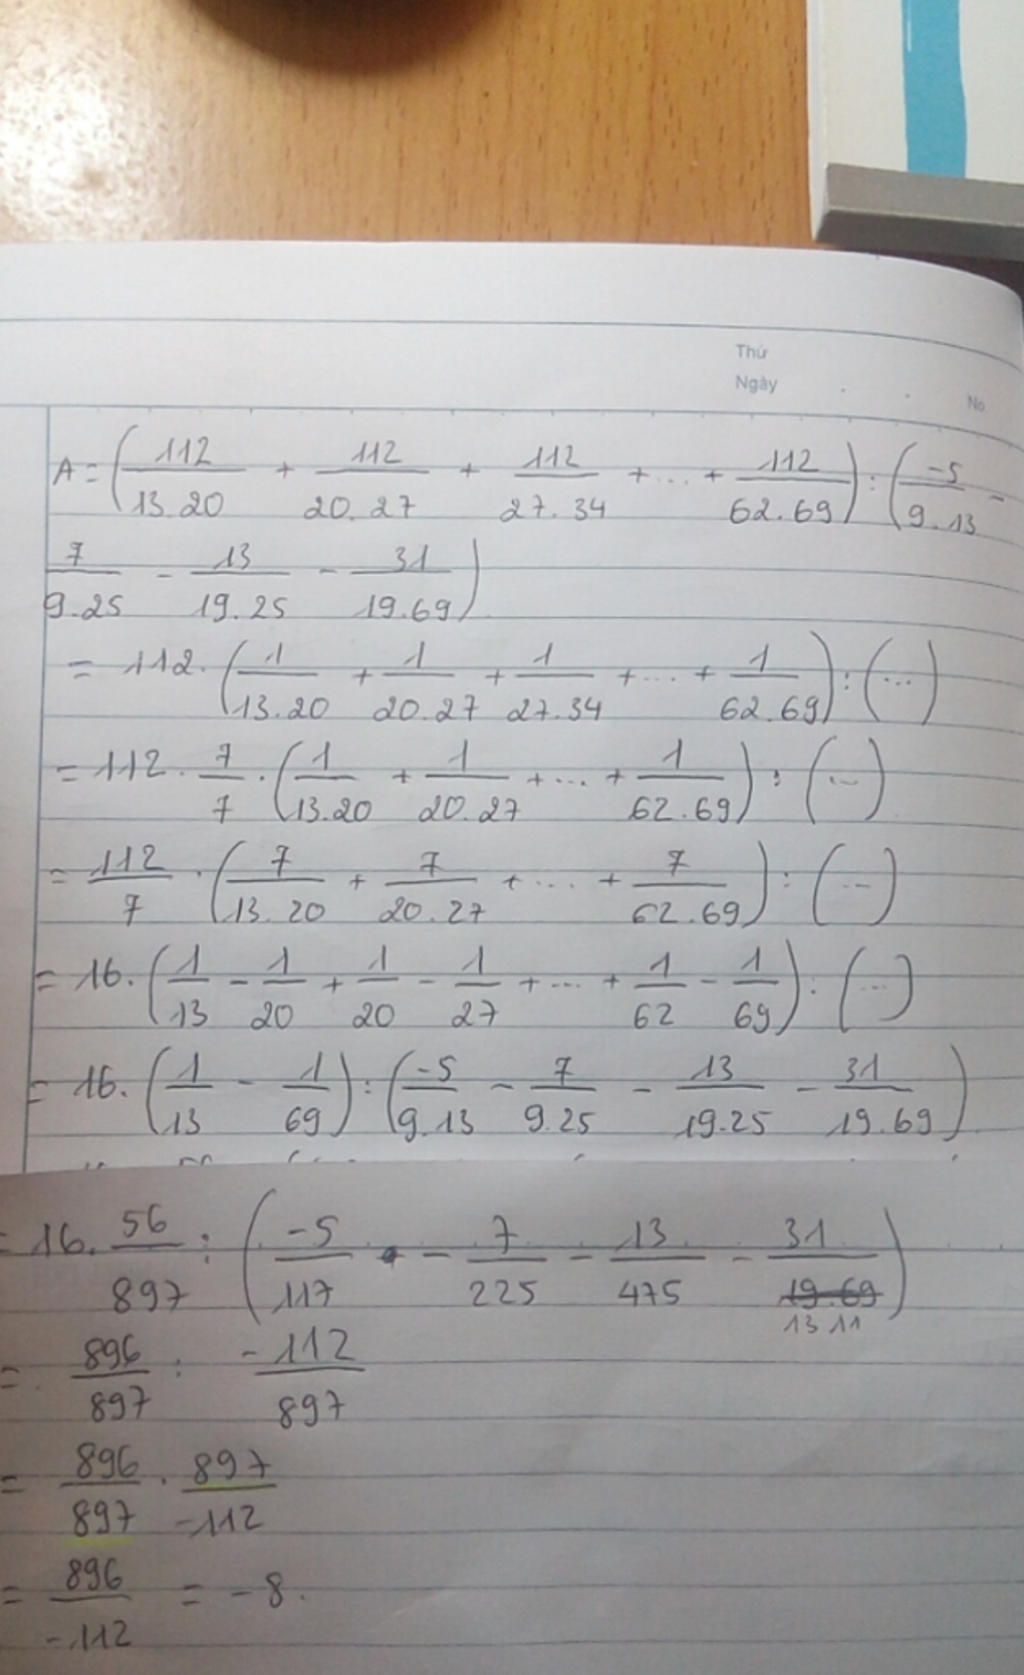 Thứ
Ngày . . No
A = (112/13.20 + 112/20.27 + 112/27.34 + ... + 112/62.69) : (-5/9.13 -
7/9.25 - 13/19.25 - 31/19.69)
= 112. (1/13.20 + 1/20.27 + 1/27.34 + ... + 1/62.69) : (...)
= 112 . 7/7 . (1/13.20 + 1/20.27 + ... + 1/62.69) : (...)
= 112/7 . (7/13.20 + 7/20.27 + .... + 7/62.69) : (...)
= 16. (1/13 - 1/20 + 1/20 - 1/27 + ... + 1/62 - 1/69) : (...)
= 16. (1/13 - 1/69) : (-5/9.13 - 7/9.25 - 13/19.25 - 31/19.69)
= 16. 56/897 : (-5/117 - 7/225 - 13/475 - 31/1311)
= 896/897 : -112/897
= 896/897 . 897/-112
= 896/-112 = -8.